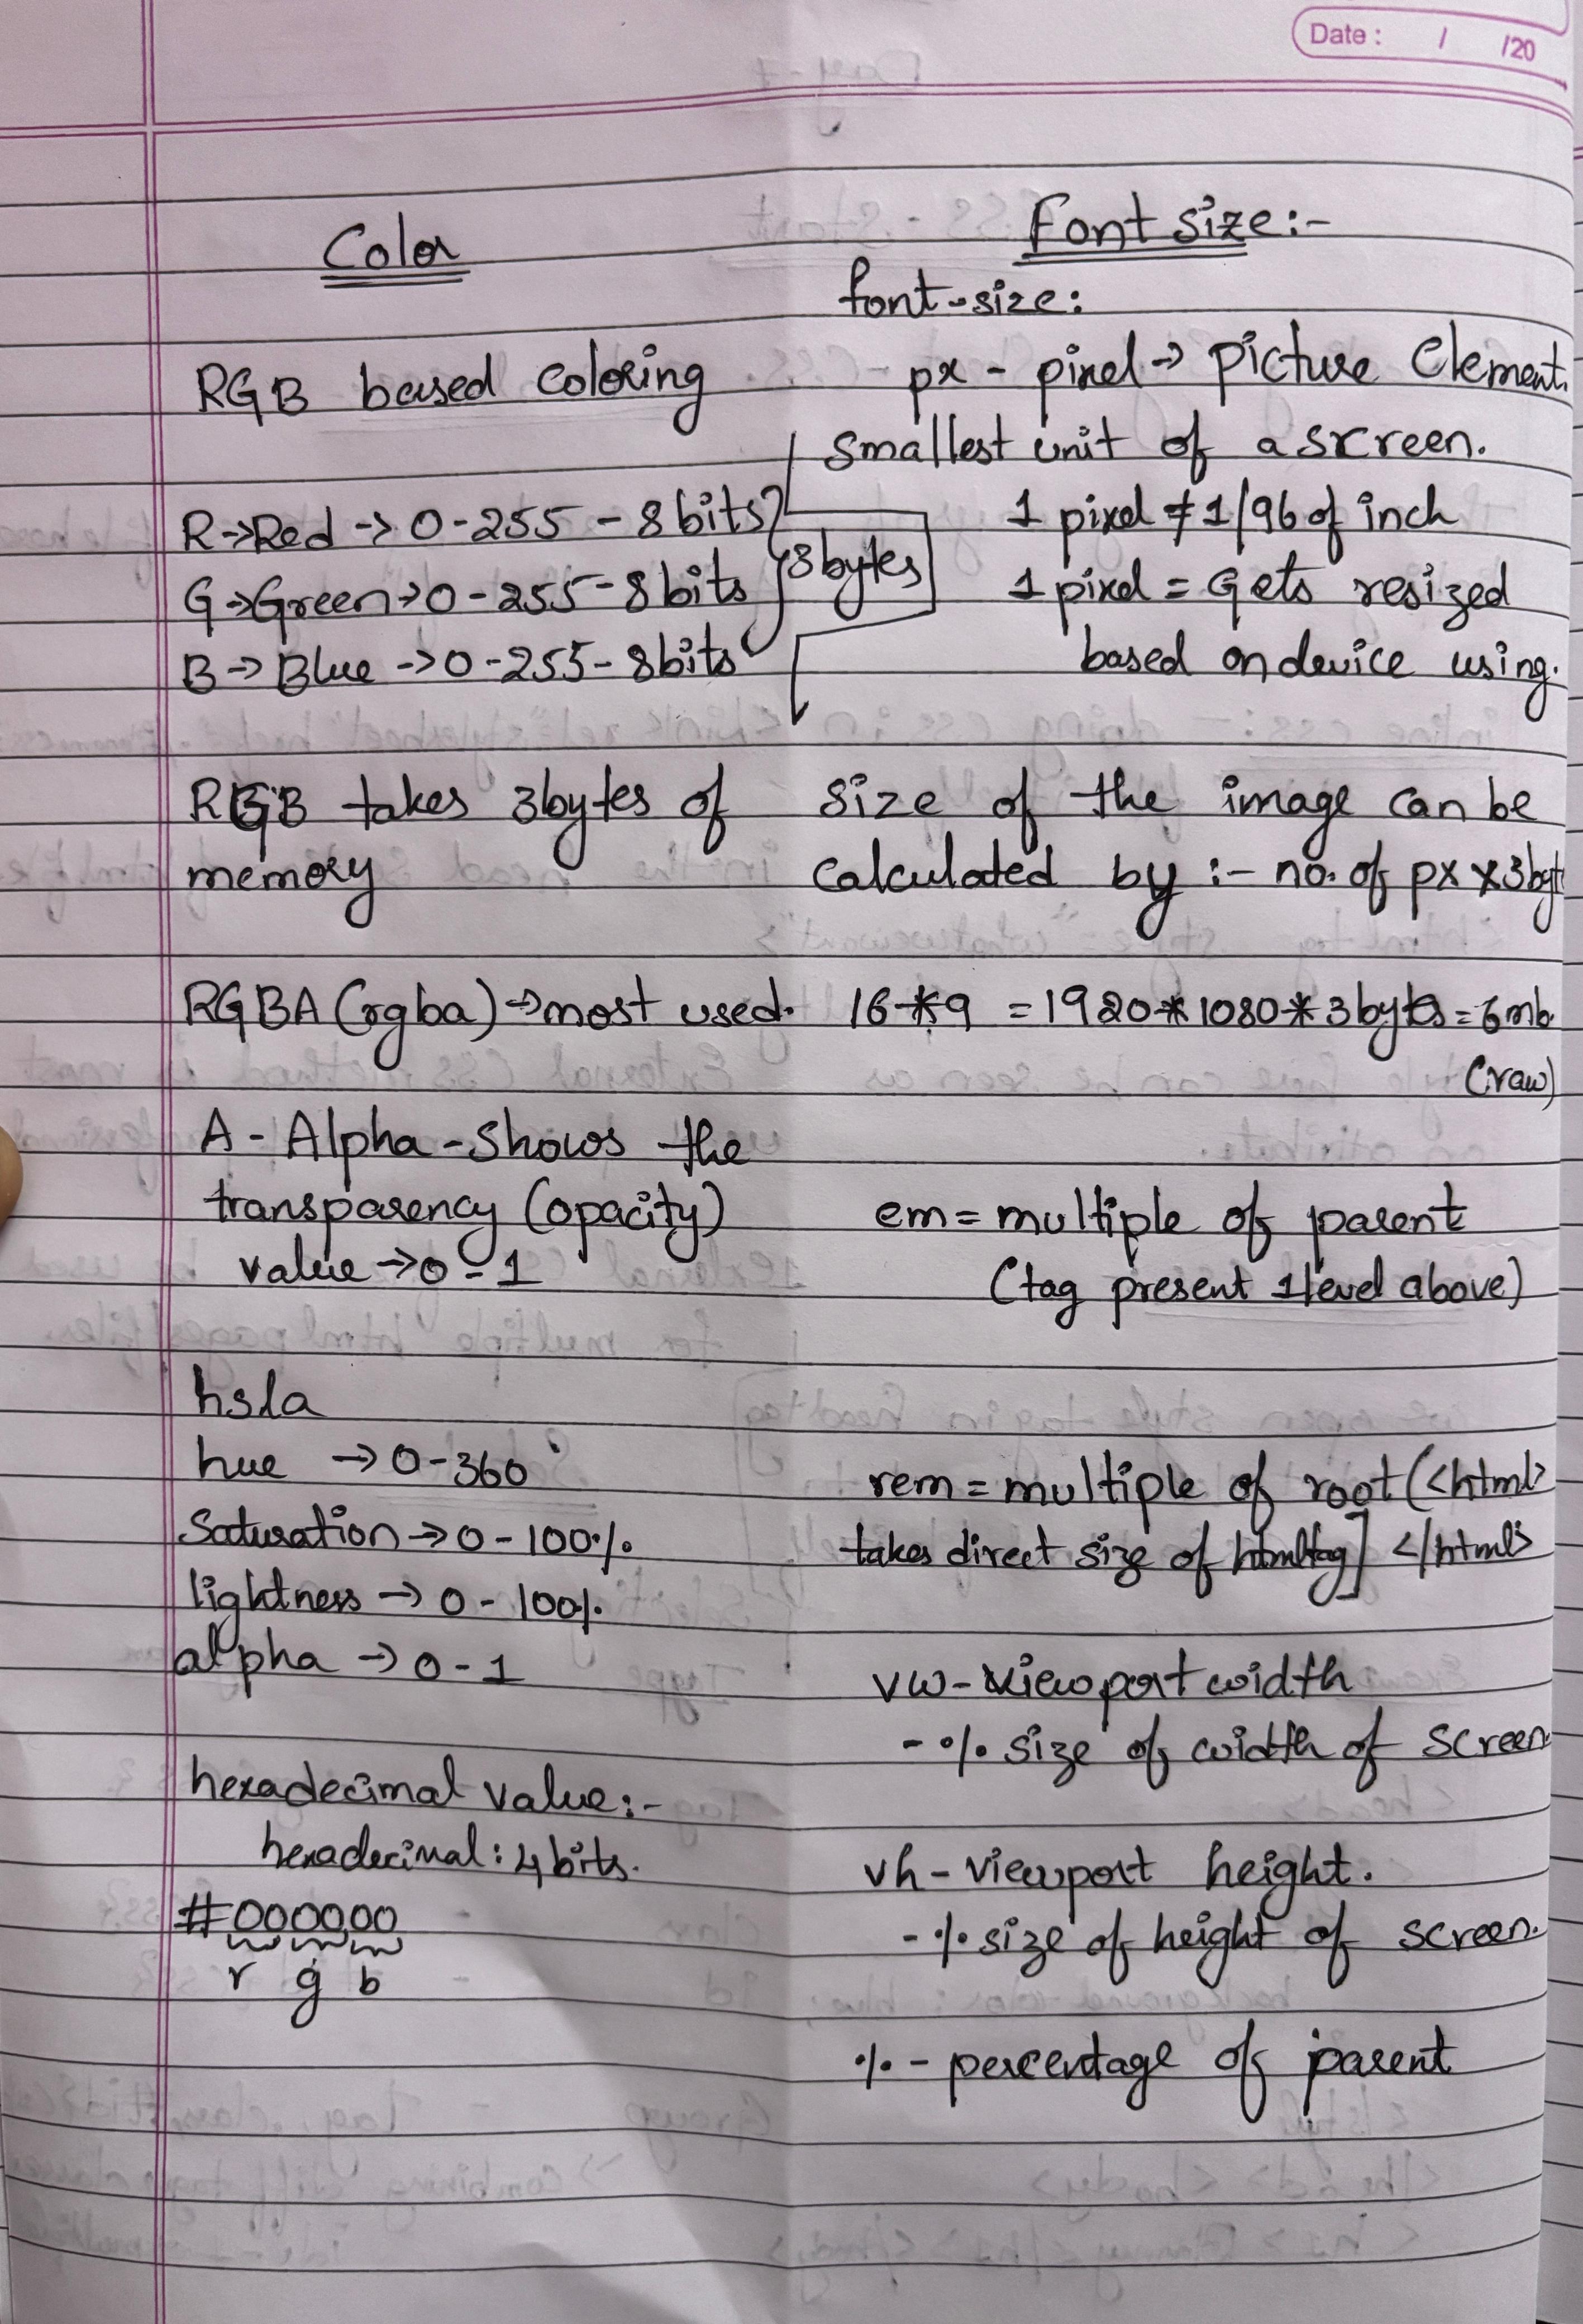 Date : / /20
Color
RGB based coloring
R->Red -> 0-255 - 8bits
G->Green->0-255-8bits
B-> Blue ->0-255-8bits
3bytes
RGB takes 3bytes of
memory
RGBA (rgba)->most used.
A - Alpha - Shows the
transparency (opacity)
value ->0-1
hsla
hue -> 0-360°
Saturation -> 0-100%
lightness -> 0-100%
alpha -> 0-1
hexadecimal value:-
hexadecimal: 4 bits.
#000000
r g b
Font size:-
font-size:
px - pixel -> Picture Element.
Smallest unit of a screen.
1 pixel ≠ 1/96 of inch
1 pixel = Gets resized
based on device using.
Size of the image can be
calculated by :- no. of px x 3byt
16*9 = 1920*1080*3bytes = 6mb
(raw)
em = multiple of parent
(tag present 1level above)
rem = multiple of root (<html>
takes direct size of htmltag] </html>
vw - viewport width
- % size of width of screen.
vh - viewport height.
- % size of height of screen.
% - percentage of parent